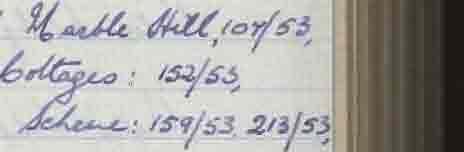 Marble Hill, 107/53,
Cottages: 152/53,
Scheme: 159/53, 213/53,